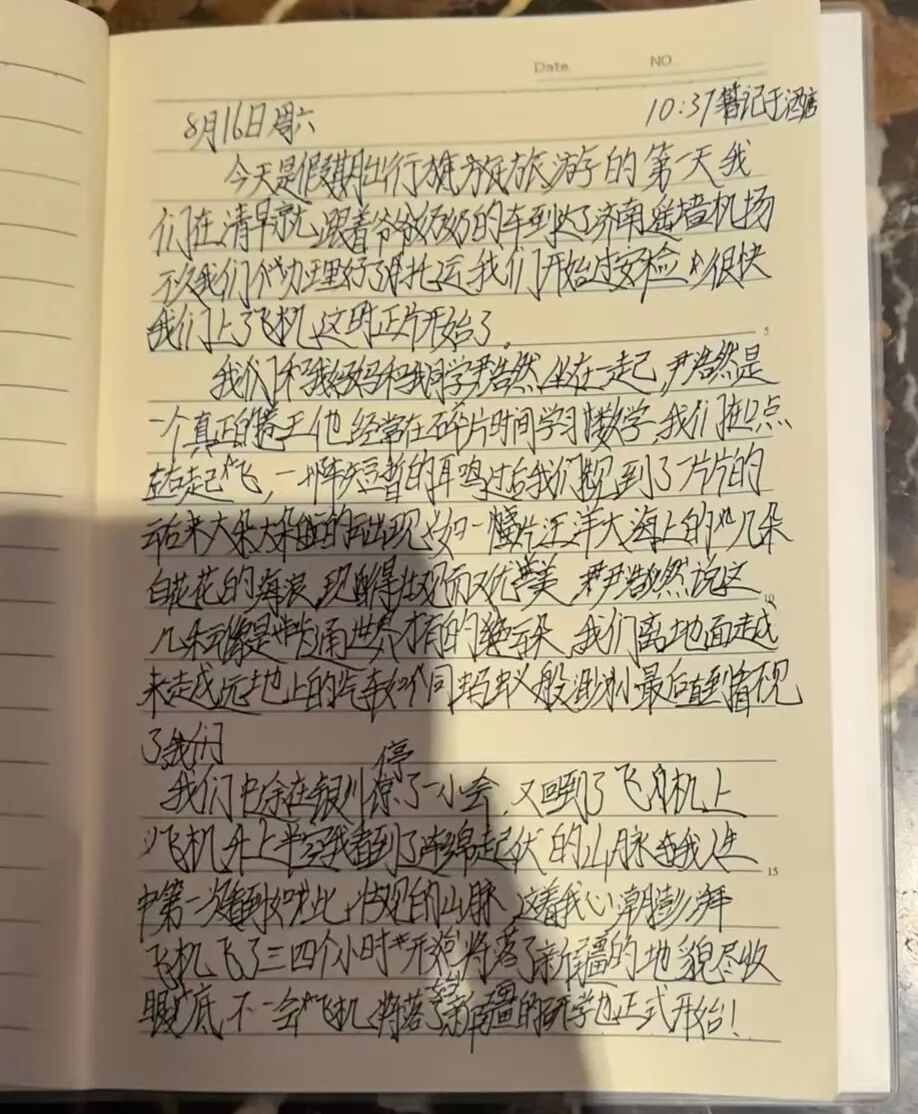 Date.
NO.
8月16日周六
10:37笔记于酒店
今天是假期出行旅游的第一天我
们在清早就跟着爷爷奶奶的车到达了济南遥墙机场
不久我们办理好了托运我们开始过安检很快
我们上了飞机,这时正片开始了。
我们和我妈妈和我同学尹浩然坐在一起,尹浩然是
一个真正的卷王他经常在碎片时间学习数学,我们
点
左右起飞,一阵短暂的耳鸣过后我们看到了一片片的
云后来大朵大朵的云出现如一片汪洋大海上的几朵
白花花的海浪,显得壮观而又优美 尹浩然说这
几朵云像是卡通世界才有的云朵,我们离地面越
来越远地上的汽车如同蚂蚁般渺小最后直到看不见
了我们
我们中途在银川停了一小会,又回到了飞机上
飞机升上半空我看到了连绵起伏的山脉我人生
中第一次看到如此壮观的山脉,这着我心潮澎湃
飞机飞了三四个小时开始将落了新疆的地貌尽收
眼底,不一会飞机将落了新疆的研学也正式开始!
5
10
15